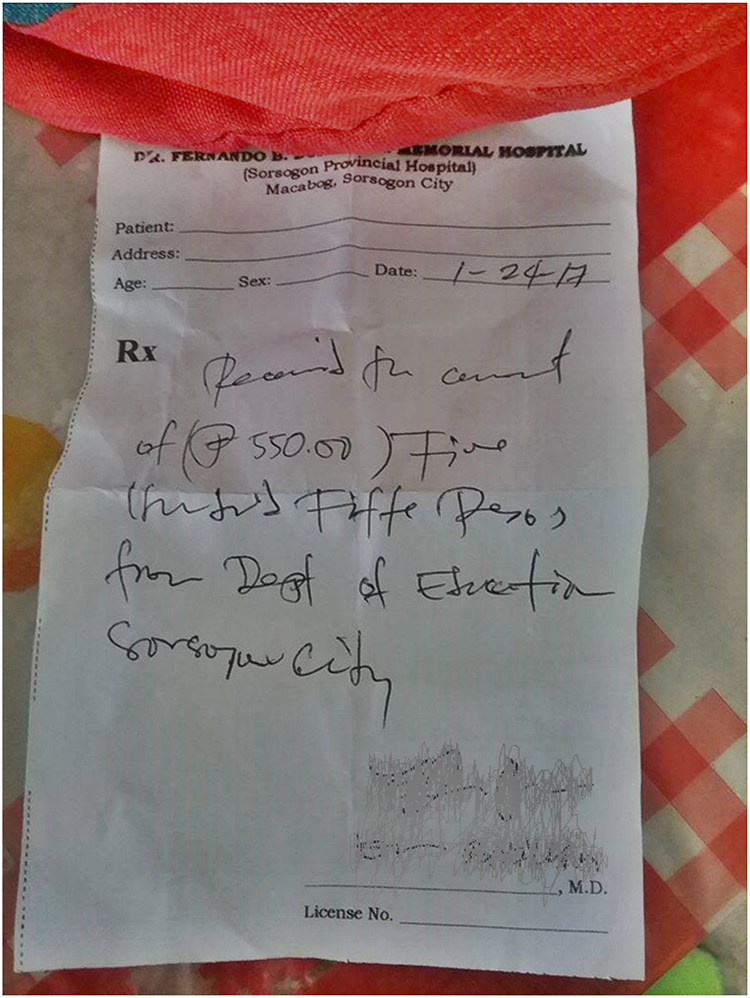 DR. FERNANDO B. MEMORIAL HOSPITAL
(Sorsogon Provincial Hospital)
Macabog, Sorsogon City
Patient:
Address:
Age: Sex: Date: 1-24-17
Rx
Received the amount
of (₱ 550.00) Five
Hundred Fiffe Pesos
from Dept of Education
Sorsogon City
, M.D.
License No.